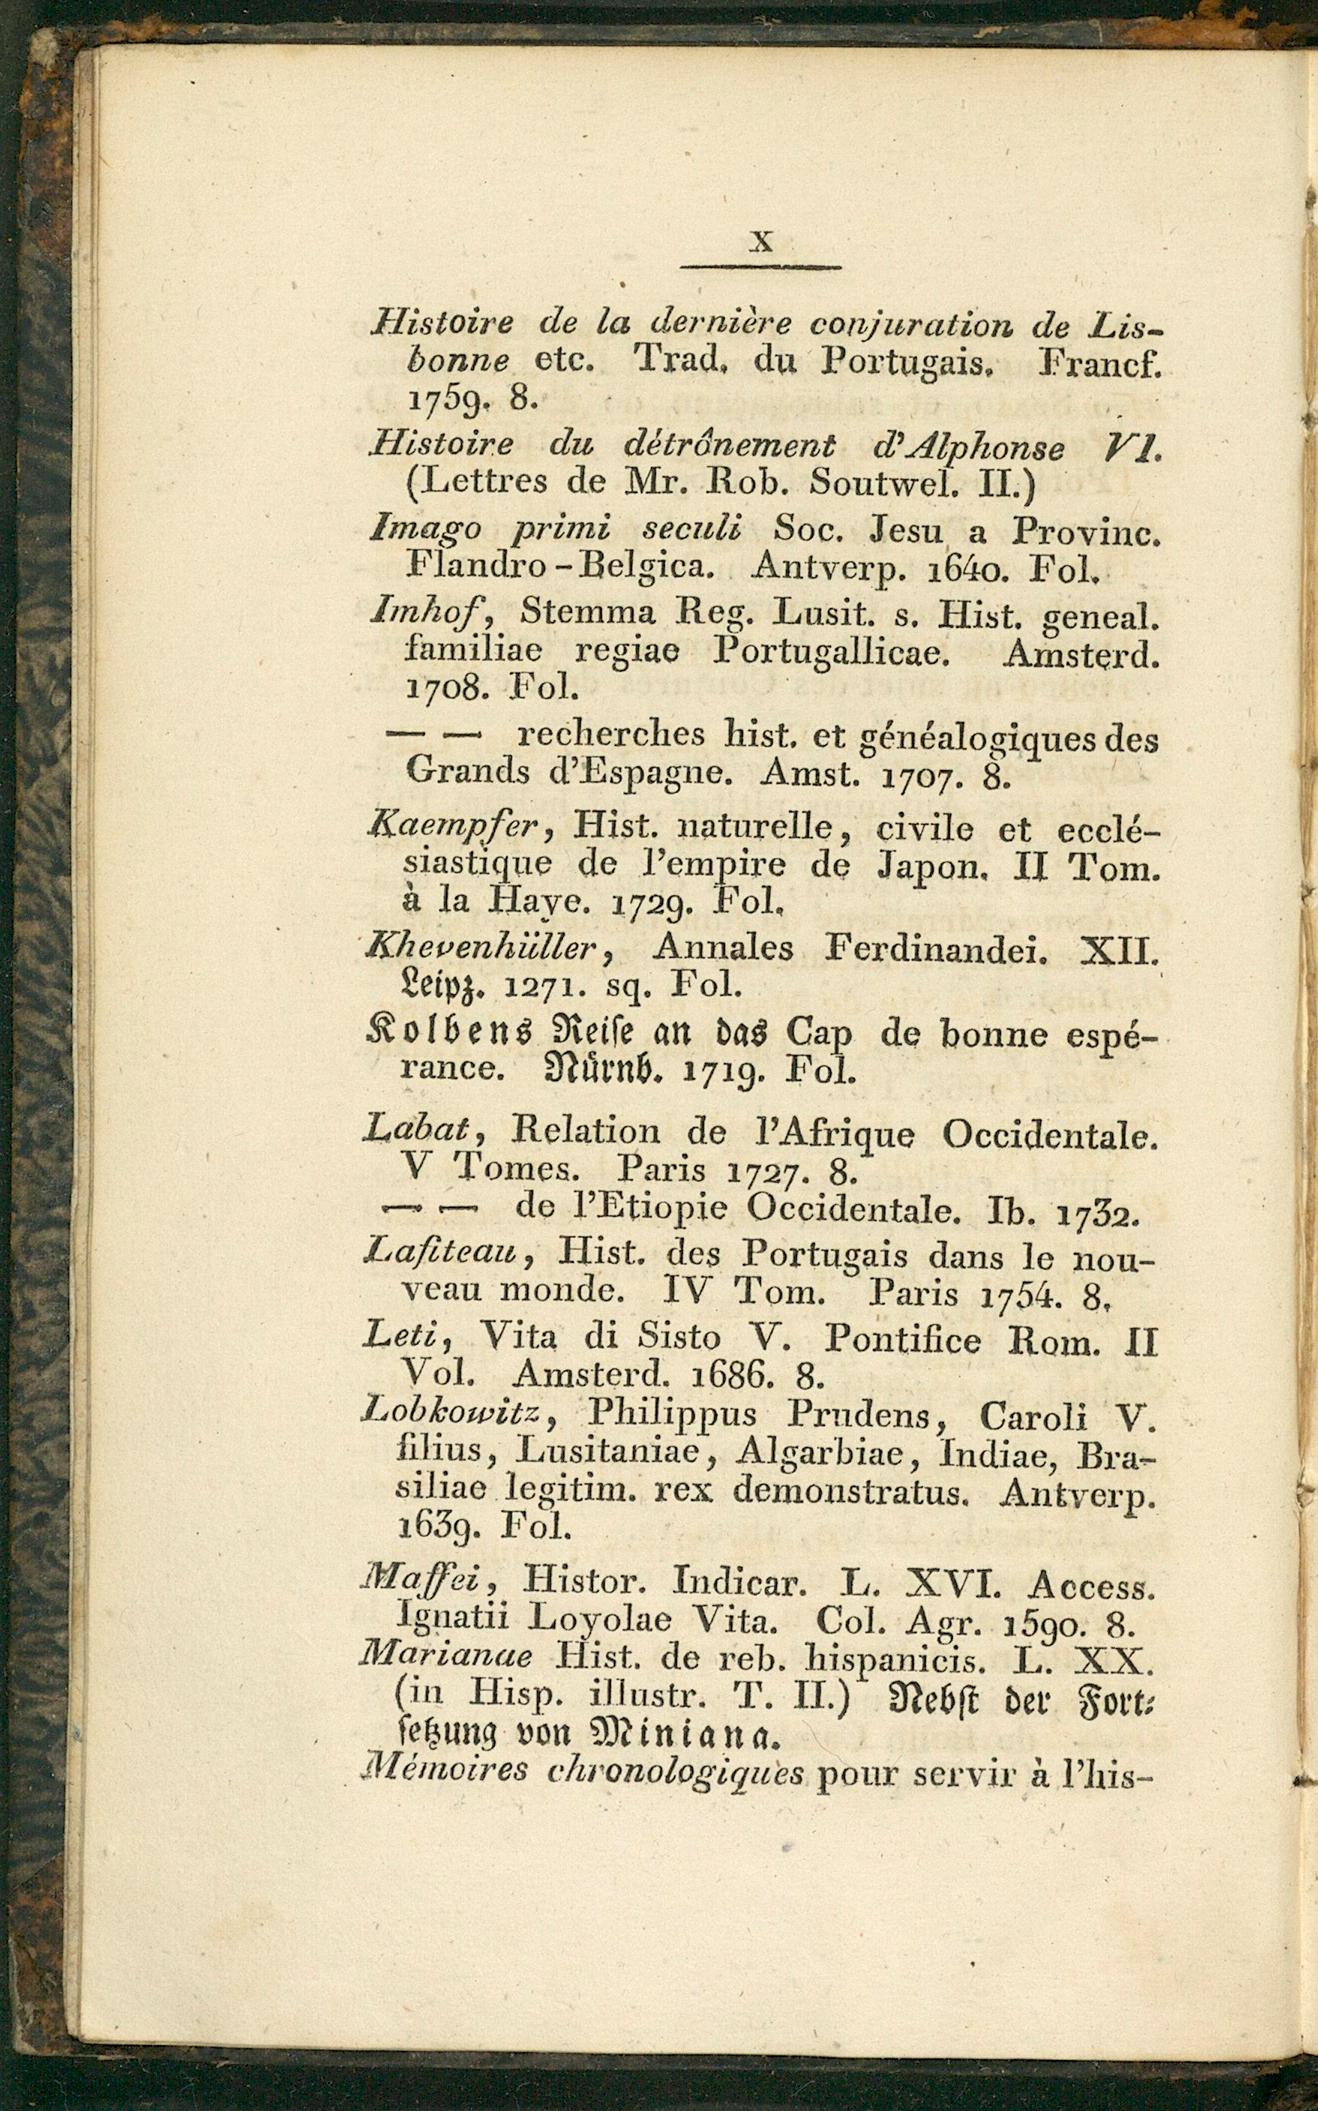 X
Histoire de la dernière conjuration de Lis-
bonne etc. Trad. du Portugais. Francf.
1759. 8.
Histoire du détrônement d'Alphonse VI.
(Lettres de Mr. Rob. Soutwel. II.)
Imago primi seculi Soc. Jesu a Provinc.
Flandro-Belgica. Antverp. 1640. Fol.
Imhof, Stemma Reg. Lusit. s. Hist. geneal.
familiae regiae Portugallicae. Amsterd.
1708. Fol.
— — recherches hist. et généalogiques des
Grands d'Espagne. Amst. 1707. 8.
Kaempfer, Hist. naturelle, civile et ecclé-
siastique de l'empire de Japon. II Tom.
à la Haye. 1729. Fol.
Khevenhüller, Annales Ferdinandei. XII.
Leipz. 1271. sq. Fol.
Kolbens Reiſe an das Cap de bonne espé-
rance. Nürnb. 1719. Fol.
Labat, Relation de l'Afrique Occidentale.
V Tomes. Paris 1727. 8.
— — de l'Etiopie Occidentale. Ib. 1732.
Lafiteau, Hist. des Portugais dans le nou-
veau monde. IV Tom. Paris 1754. 8.
Leti, Vita di Sisto V. Pontifice Rom. II
Vol. Amsterd. 1686. 8.
Lobkowitz, Philippus Prudens, Caroli V.
filius, Lusitaniae, Algarbiae, Indiae, Bra-
siliae legitim. rex demonstratus. Antverp.
1639. Fol.
Maffei, Histor. Indicar. L. XVI. Access.
Ignatii Loyolae Vita. Col. Agr. 1590. 8.
Marianae Hist. de reb. hispanicis. L. XX.
(in Hisp. illustr. T. II.) Nebſt der Fort-
ſetzung von Miniana.
Mémoires chronologiques pour servir à l'his-